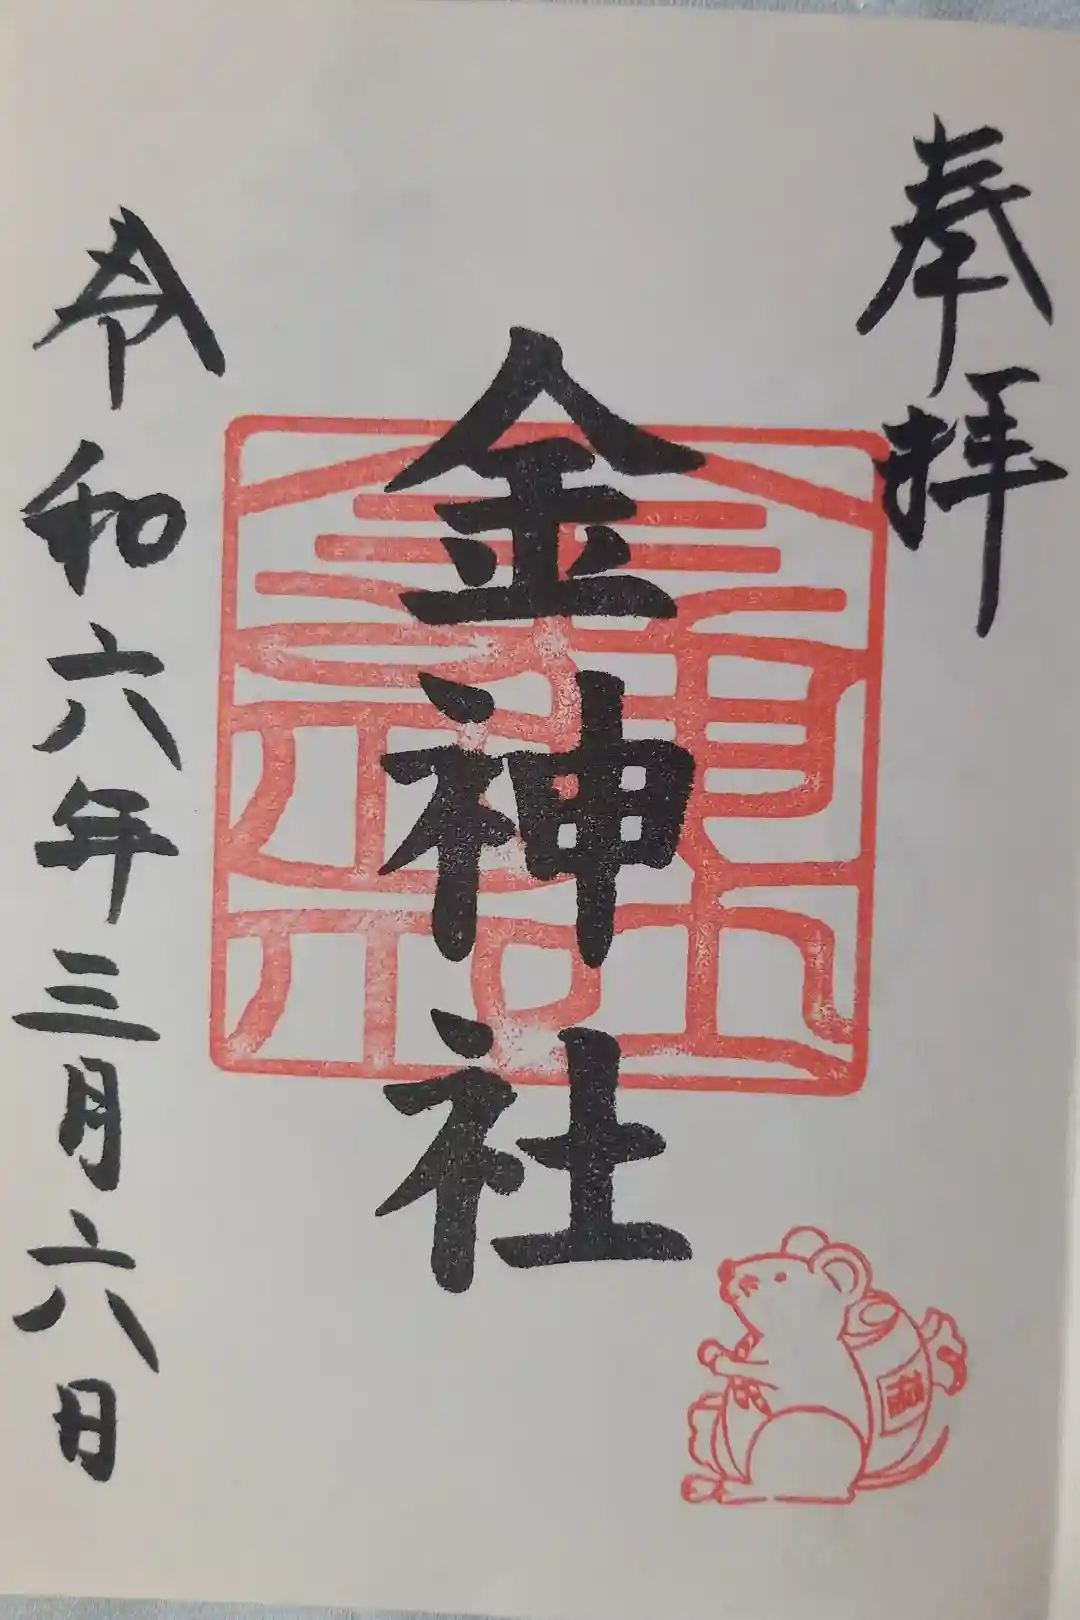 奉拝
金神社
令和六年三月六日